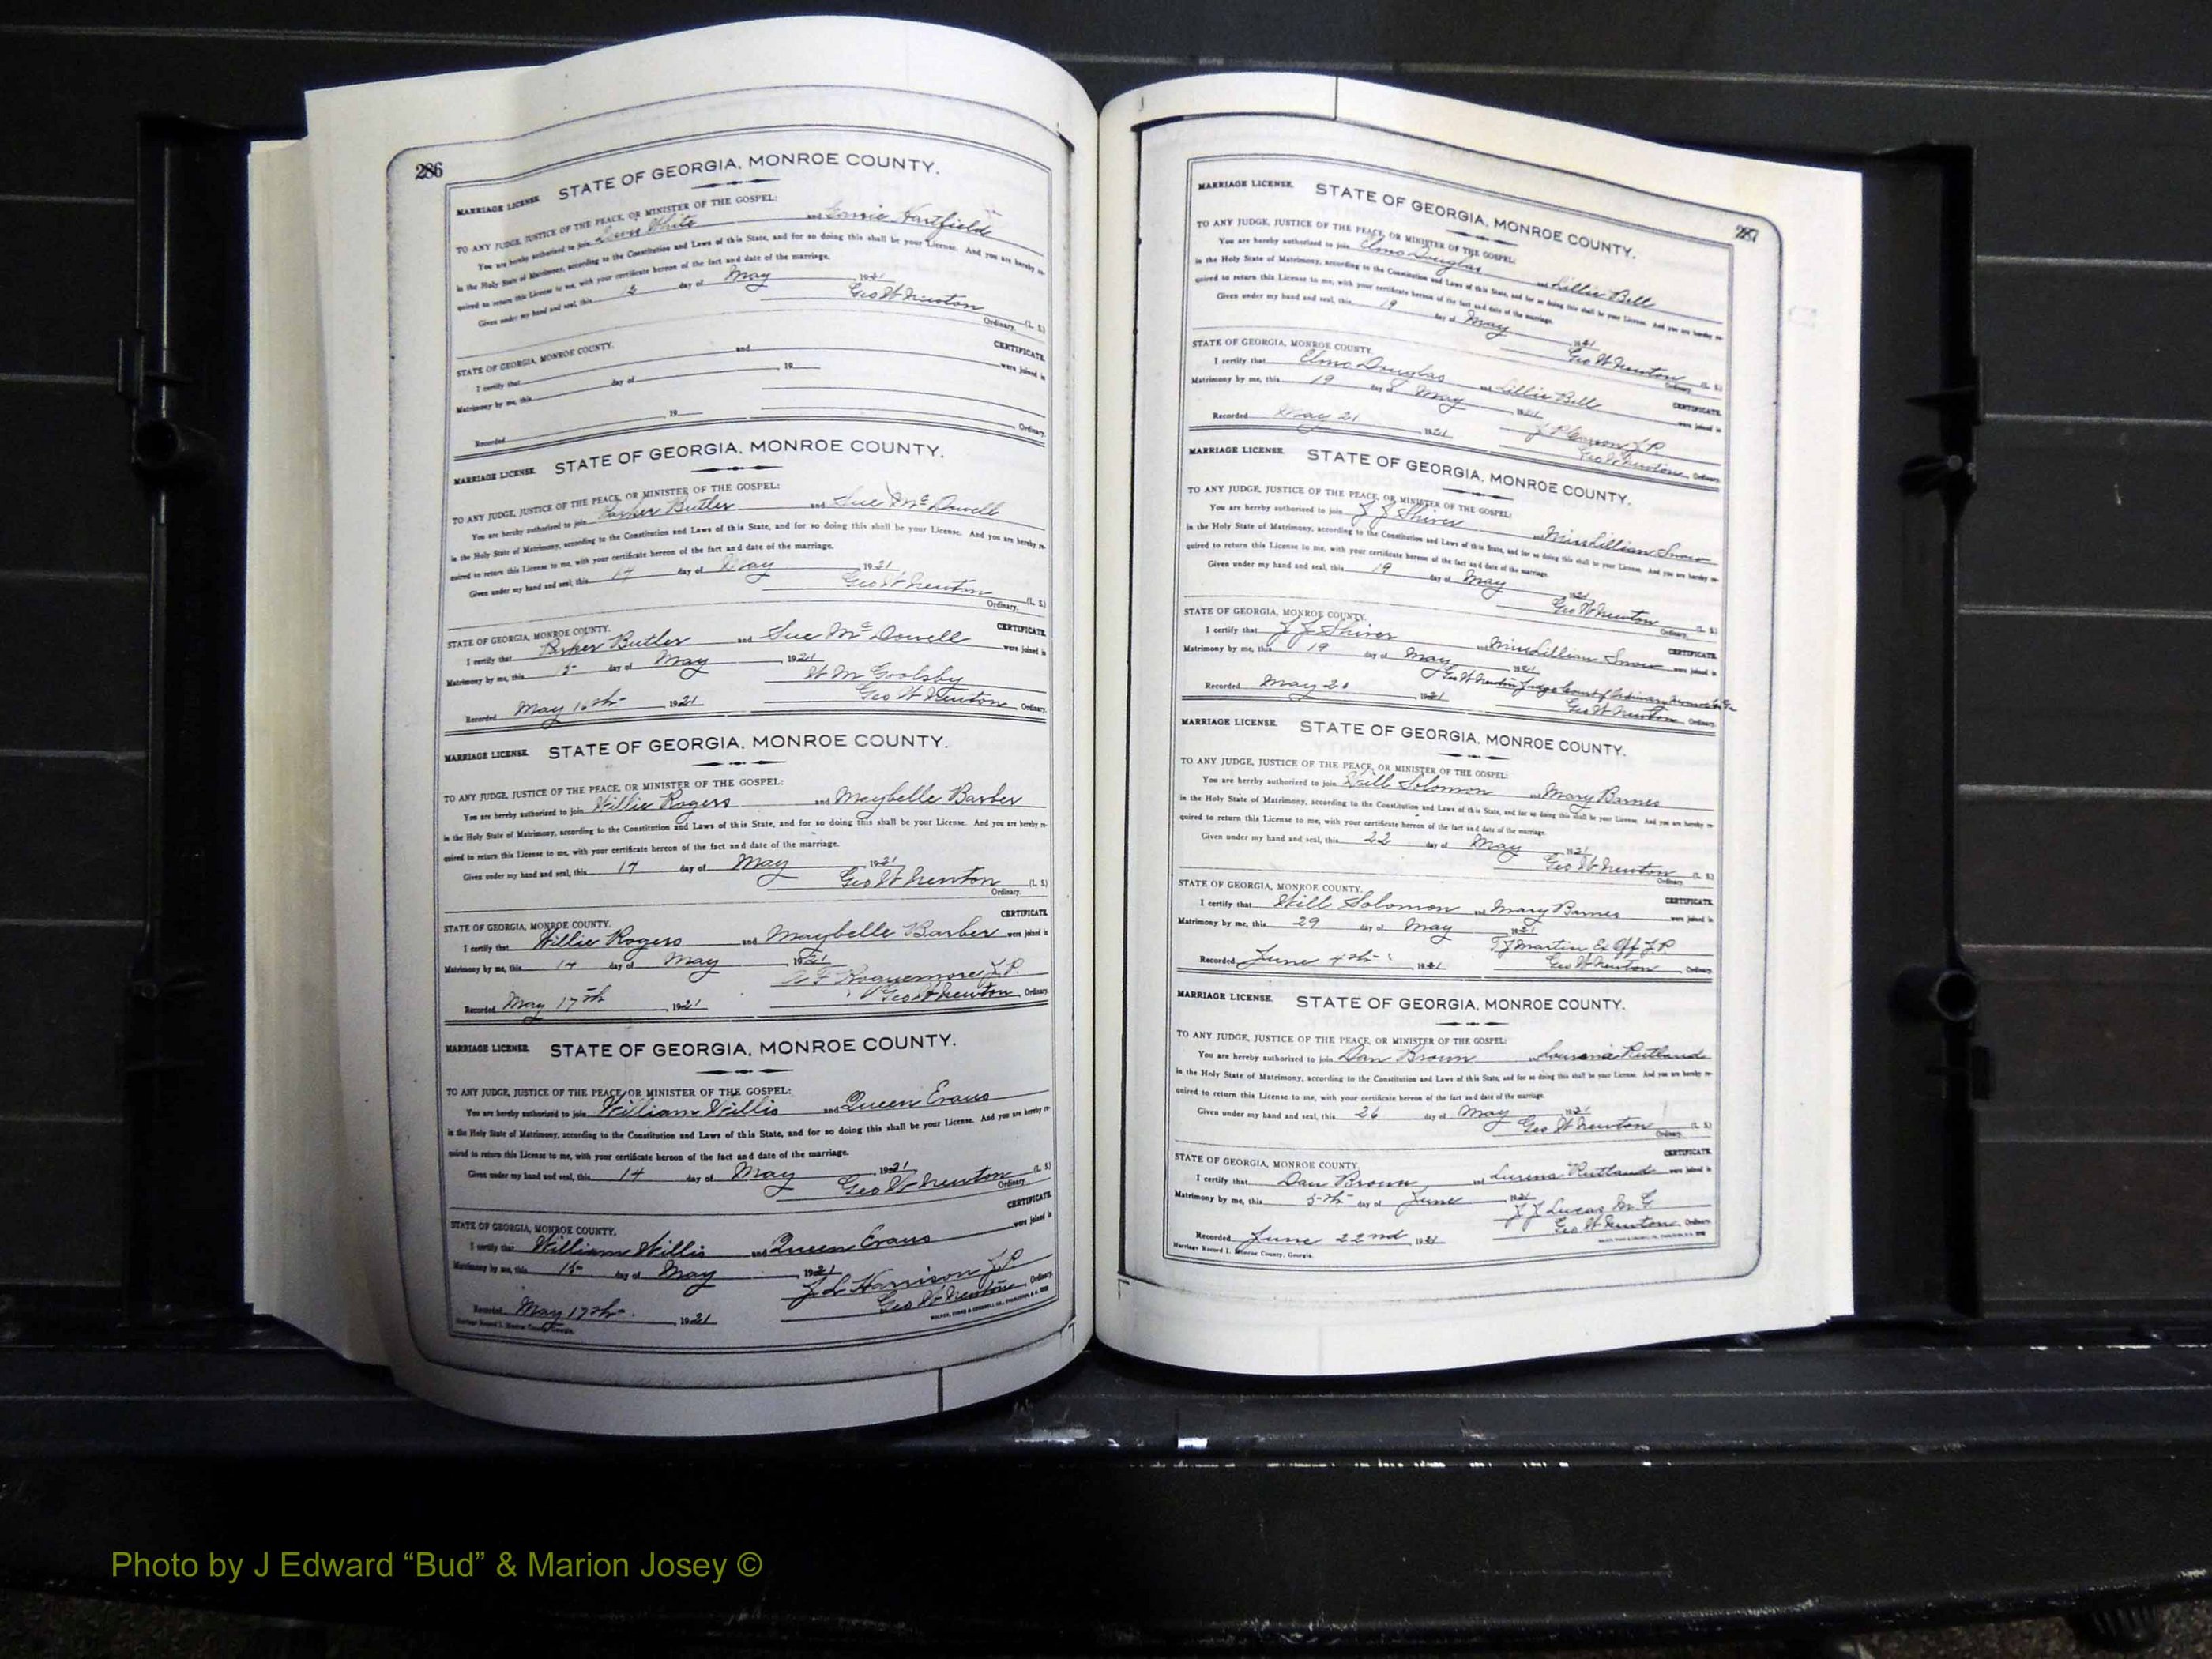 286
MARRIAGE LICENSE. STATE OF GEORGIA, MONROE COUNTY.
TO ANY JUDGE, JUSTICE OF THE PEACE, OR MINISTER OF THE GOSPEL:
You are hereby authorized to join White and Hartfield
in the Holy State of Matrimony, according to the Constitution and Laws of this State, and for so doing this shall be your License. And you are hereby re-
quired to return this License to me, with your certificate hereon of the fact and date of the marriage.
Given under my hand and seal, this 2 day of May 1921
Geo W Newton (L. S.)
Ordinary.
CERTIFICATE.
STATE OF GEORGIA, MONROE COUNTY.
I certify that and were joined in
Matrimony by me, this day of , 19
Recorded , 19 Ordinary.
MARRIAGE LICENSE. STATE OF GEORGIA, MONROE COUNTY.
TO ANY JUDGE, JUSTICE OF THE PEACE, OR MINISTER OF THE GOSPEL:
You are hereby authorized to join Parker Butler and Sue McDowell
in the Holy State of Matrimony, according to the Constitution and Laws of this State, and for so doing this shall be your License. And you are hereby re-
quired to return this License to me, with your certificate hereon of the fact and date of the marriage.
Given under my hand and seal, this 14 day of May 1921
Geo W Newton (L. S.)
Ordinary.
CERTIFICATE.
STATE OF GEORGIA, MONROE COUNTY.
I certify that Parker Butler and Sue McDowell were joined in
Matrimony by me, this 15 day of May , 1921
W M Goolsby
Recorded May 16th 1921 Geo W Newton Ordinary.
MARRIAGE LICENSE. STATE OF GEORGIA, MONROE COUNTY.
TO ANY JUDGE, JUSTICE OF THE PEACE, OR MINISTER OF THE GOSPEL:
You are hereby authorized to join Willie Rogers and Maybelle Barber
in the Holy State of Matrimony, according to the Constitution and Laws of this State, and for so doing this shall be your License. And you are hereby re-
quired to return this License to me, with your certificate hereon of the fact and date of the marriage.
Given under my hand and seal, this 14 day of May 1921
Geo W Newton (L. S.)
Ordinary.
CERTIFICATE.
STATE OF GEORGIA, MONROE COUNTY.
I certify that Willie Rogers and Maybelle Barber were joined in
Matrimony by me, this 14 day of May 1921
Roquemore J.P.
Recorded May 17th , 1921 Geo W Newton Ordinary.
MARRIAGE LICENSE. STATE OF GEORGIA, MONROE COUNTY.
TO ANY JUDGE, JUSTICE OF THE PEACE, OR MINISTER OF THE GOSPEL:
You are hereby authorized to join William Willis and Queen Evans
in the Holy State of Matrimony, according to the Constitution and Laws of this State, and for so doing this shall be your License. And you are hereby re-
quired to return this License to me, with your certificate hereon of the fact and date of the marriage.
Given under my hand and seal, this 14 day of May , 1921
Geo W Newton (L. S.)
Ordinary.
CERTIFICATE.
STATE OF GEORGIA, MONROE COUNTY.
I certify that William Willis and Queen Evans were joined in
Matrimony by me, this 15 day of May , 1921
J L Harrison J.P.
Recorded May 17th , 1921 Geo W Newton Ordinary.
Marriage Record I. Monroe County, Georgia.
287
MARRIAGE LICENSE. STATE OF GEORGIA, MONROE COUNTY.
TO ANY JUDGE, JUSTICE OF THE PEACE, OR MINISTER OF THE GOSPEL:
You are hereby authorized to join Elmo Douglas and Lillie Bell
in the Holy State of Matrimony, according to the Constitution and Laws of this State, and for so doing this shall be your License. And you are hereby re-
quired to return this License to me, with your certificate hereon of the fact and date of the marriage.
Given under my hand and seal, this 19 day of May 1921
Geo W Newton (L. S.)
Ordinary.
CERTIFICATE.
STATE OF GEORGIA, MONROE COUNTY.
I certify that Elmo Douglas and Lillie Bell were joined in
Matrimony by me, this 19 day of May , 1921
J.P.
Recorded May 21 1921 Geo W Newton Ordinary.
MARRIAGE LICENSE. STATE OF GEORGIA, MONROE COUNTY.
TO ANY JUDGE, JUSTICE OF THE PEACE, OR MINISTER OF THE GOSPEL:
You are hereby authorized to join J J Shiver and Miss Lillian Snow
in the Holy State of Matrimony, according to the Constitution and Laws of this State, and for so doing this shall be your License. And you are hereby re-
quired to return this License to me, with your certificate hereon of the fact and date of the marriage.
Given under my hand and seal, this 19 day of May 1921
Geo W Newton (L. S.)
Ordinary.
CERTIFICATE.
STATE OF GEORGIA, MONROE COUNTY.
I certify that J J Shiver and Miss Lillian Snow were joined in
Matrimony by me, this 19 day of May 1921
Geo W Newton Judge Court of Ordinary Monroe Co Ga
Recorded May 20 1921 Geo W Newton Ordinary.
MARRIAGE LICENSE. STATE OF GEORGIA, MONROE COUNTY.
TO ANY JUDGE, JUSTICE OF THE PEACE, OR MINISTER OF THE GOSPEL:
You are hereby authorized to join Will Solomon and Mary Barnes
in the Holy State of Matrimony, according to the Constitution and Laws of this State, and for so doing this shall be your License. And you are hereby re-
quired to return this License to me, with your certificate hereon of the fact and date of the marriage.
Given under my hand and seal, this 22 day of May 1921
Geo W Newton (L. S.)
Ordinary.
CERTIFICATE.
STATE OF GEORGIA, MONROE COUNTY.
I certify that Will Solomon and Mary Barnes were joined in
Matrimony by me, this 29 day of May 1921
T J Martin Ex Off J.P.
Recorded June 4th 1921 Geo W Newton Ordinary.
MARRIAGE LICENSE. STATE OF GEORGIA, MONROE COUNTY.
TO ANY JUDGE, JUSTICE OF THE PEACE, OR MINISTER OF THE GOSPEL:
You are hereby authorized to join Dan Brown Rutland
in the Holy State of Matrimony, according to the Constitution and Laws of this State, and for so doing this shall be your License. And you are hereby re-
quired to return this License to me, with your certificate hereon of the fact and date of the marriage.
Given under my hand and seal, this 26 day of May 1921
Geo W Newton (L. S.)
Ordinary.
CERTIFICATE.
STATE OF GEORGIA, MONROE COUNTY.
I certify that Dan Brown and Lurena Rutland were joined in
Matrimony by me, this 5th day of June 1921
J J Lucas M G
Recorded June 22nd 1921 Geo W Newton Ordinary.
Marriage Record I. Monroe County, Georgia.
Photo by J Edward “Bud” & Marion Josey ©